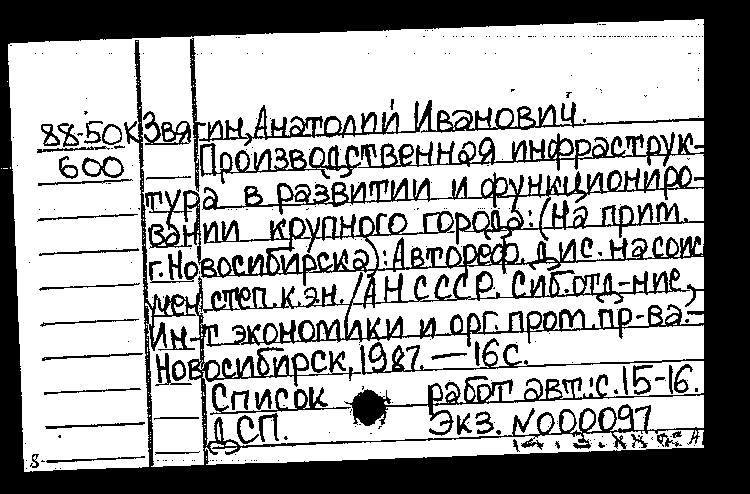 88-50к Звягин, Анатолий Иванович.
600 Производственная инфраструк-
тура в развитии и функциониро-
вании крупного города: (На прим.
г. Новосибирска): Автореф. дис. на соиск
учен. степ. к. эн. / АН СССР. Сиб. отд-ние,
Ин-т экономики и орг. пром. пр-ва. –
Новосибирск, 1987. — 16 с.
Список работ авт.: с. 15-16.
ДСП. Экз. N000097
8